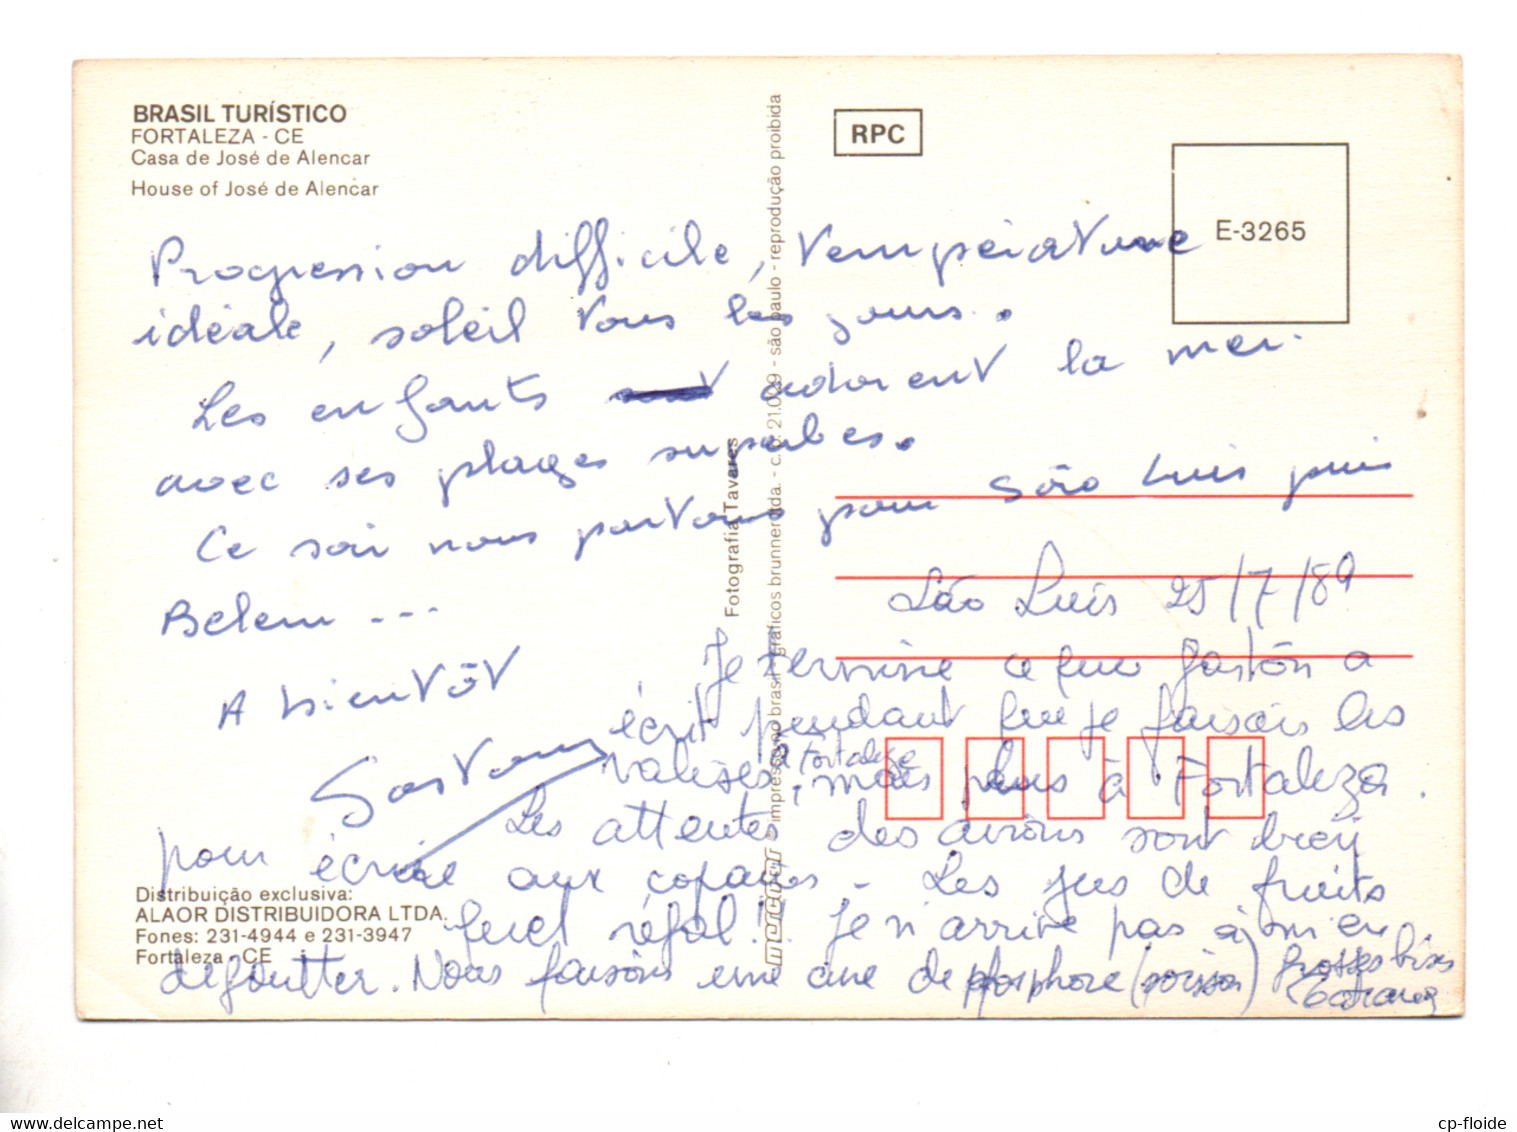 BRASIL TURÍSTICO
FORTALEZA - CE
Casa de José de Alencar
House of José de Alencar
RPC
E-3265
Progression difficile, température
idéale, soleil tous les jours.
Les enfants adorent la mer
avec ses plages superbes.
Ce soir nous partons pour São Luis puis
Belem ---
A bientôt
Gaston
São Luis 25/7/89
Je termine ce que Gaston a
écrit pendant que je faisais les
valises, à Fortaleza
mais plus à Fortaleza.
Les attentes des avions sont
pour écrire aux copains - Les jus de fruits
quel régal!! Je n'arrive pas à m'en
dégoutter. Nous faisons une cure de phosphore (poisson) Grosses bises
Fotografia Tavares
mercator impresso no brasil - gráficos brunner ltda. - c.p. 21.029 - são paulo - reprodução proibida
Distribuição exclusiva:
ALAOR DISTRIBUIDORA LTDA.
Fones: 231-4944 e 231-3947
Fortaleza - CE
cp-floide